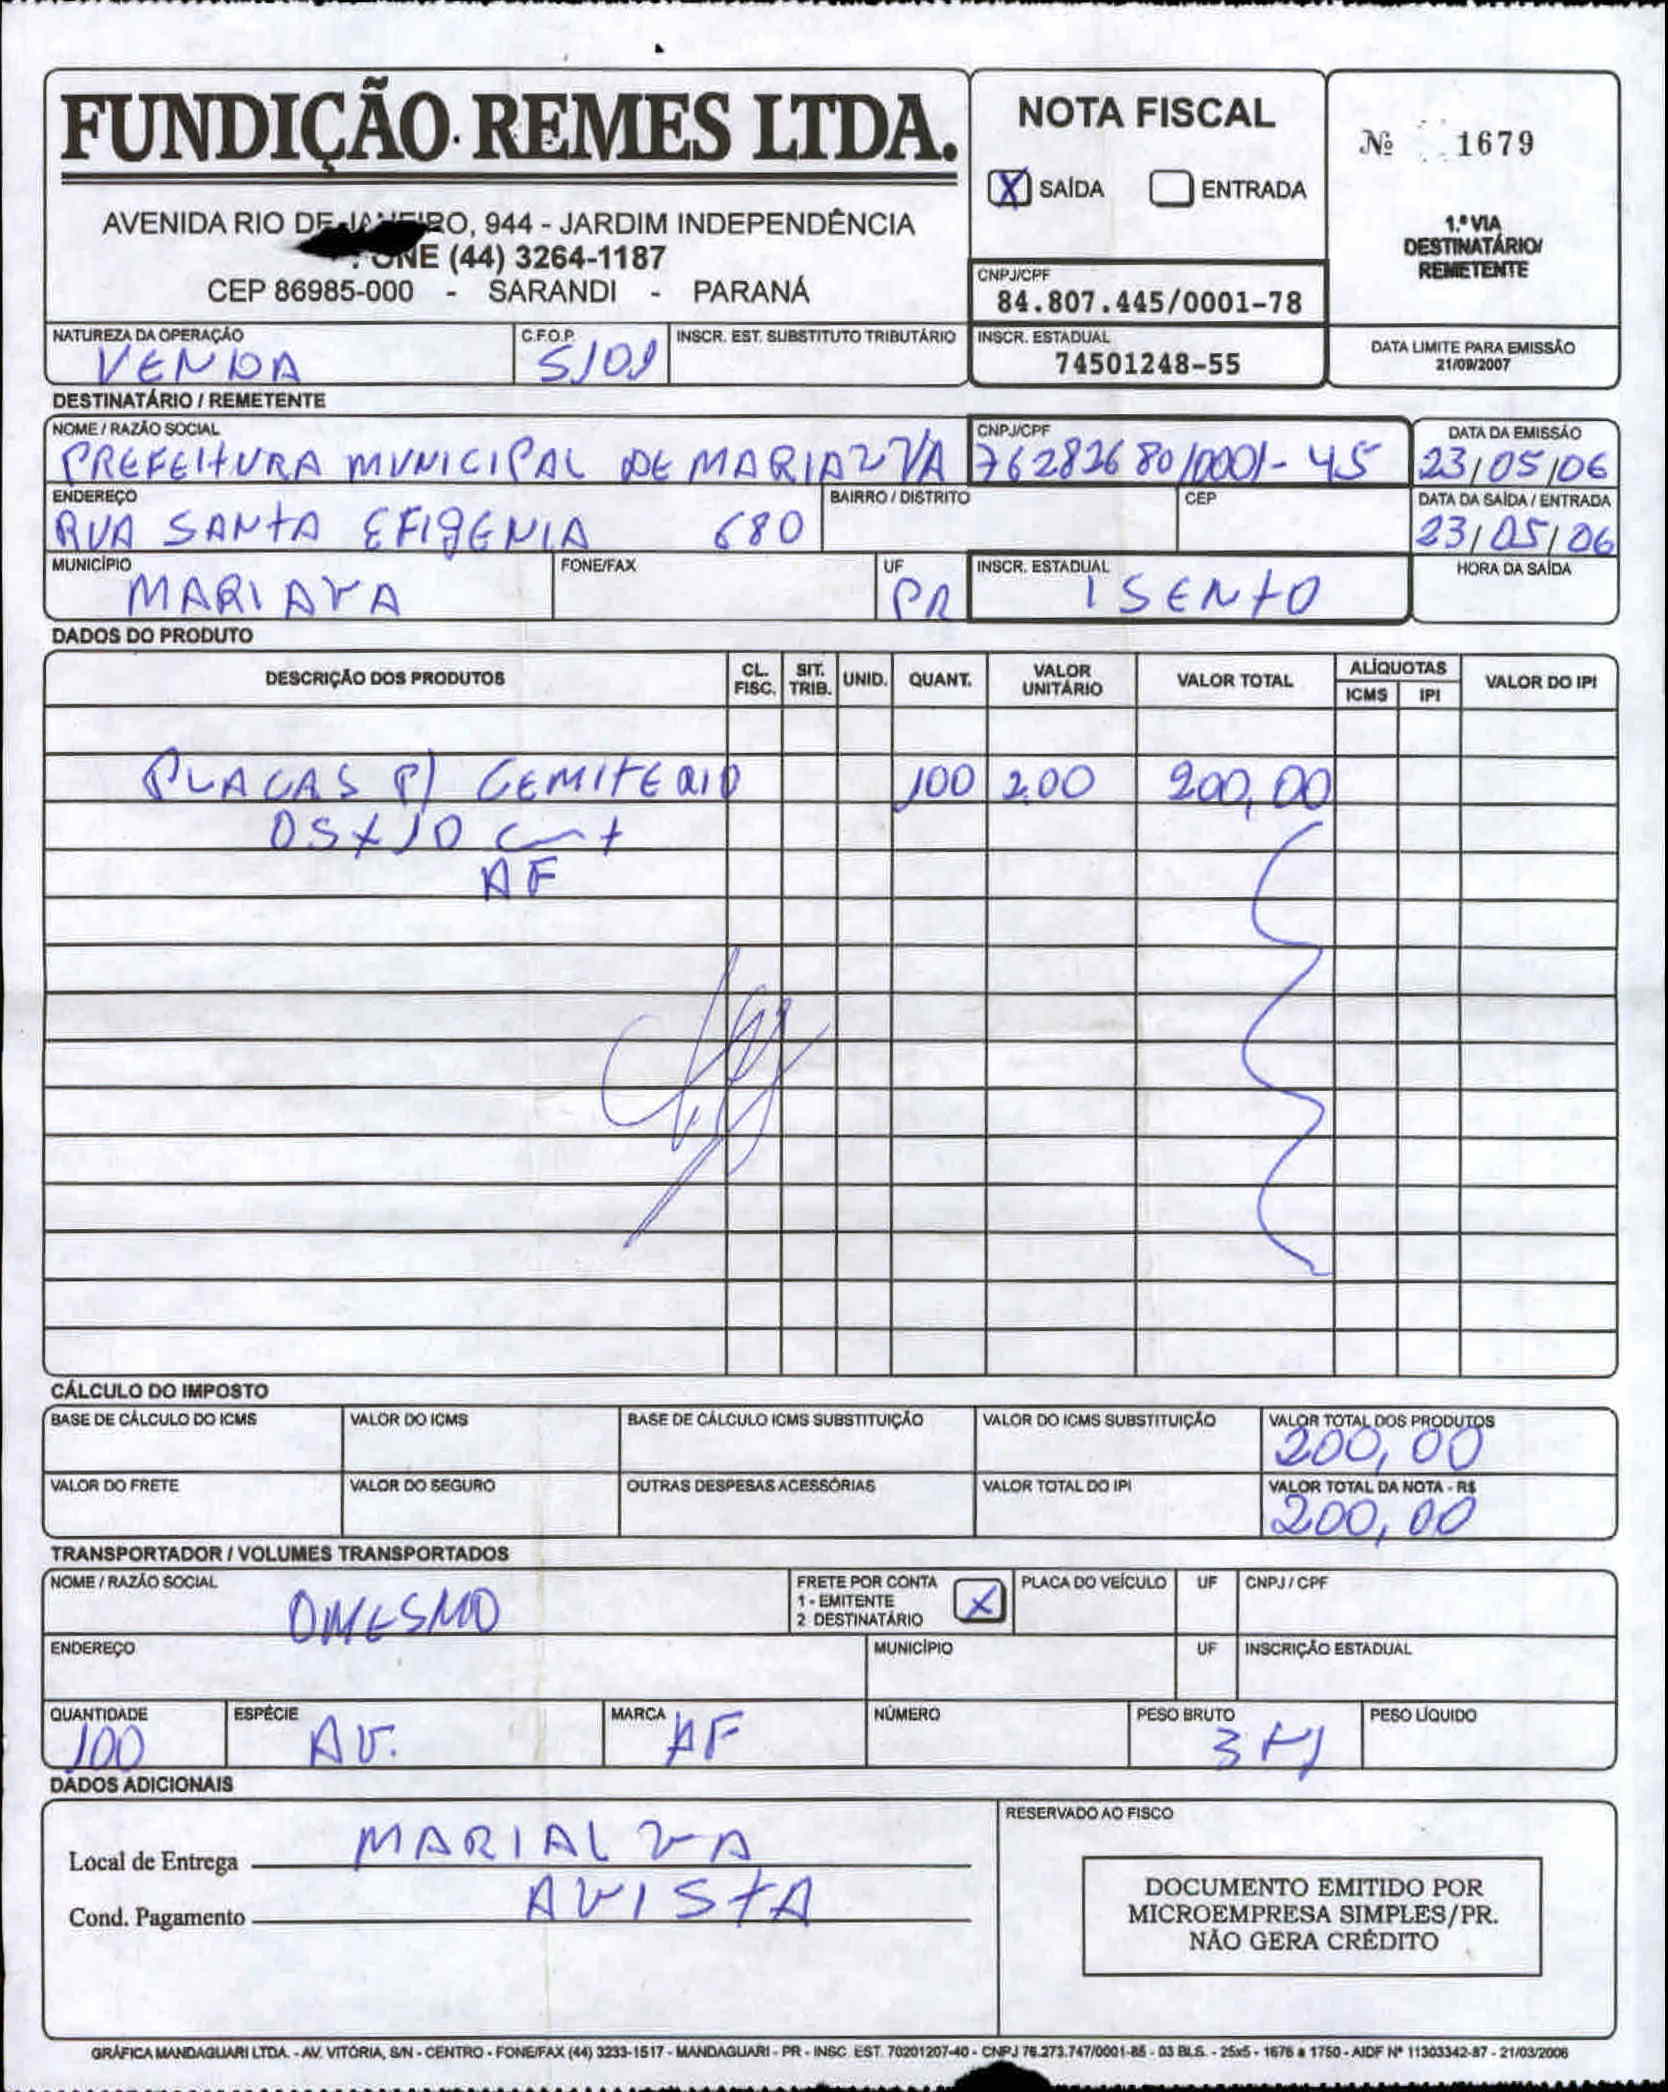 FUNDIÇÃO REMES LTDA.
AVENIDA RIO DE JANEIRO, 944 - JARDIM INDEPENDÊNCIA
FONE (44) 3264-1187
CEP 86985-000 - SARANDI - PARANÁ
NOTA FISCAL
X SAÍDA ENTRADA
CNPJ/CPF
84.807.445/0001-78
Nº 1679
1.ª VIA
DESTINATÁRIO/
REMETENTE
NATUREZA DA OPERAÇÃO
VENDA
C.F.O.P.
5101
INSCR. EST. SUBSTITUTO TRIBUTÁRIO
INSCR. ESTADUAL
74501248-55
DATA LIMITE PARA EMISSÃO
21/09/2007
DESTINATÁRIO / REMETENTE
NOME / RAZÃO SOCIAL
PREFEITURA MUNICIPAL DE MARIALVA
CNPJ/CPF
76282680/0001-45
DATA DA EMISSÃO
23/05/06
ENDEREÇO
RUA SANTA EFIGENIA 680
BAIRRO / DISTRITO
CEP
DATA DA SAÍDA / ENTRADA
23/05/06
MUNICÍPIO
MARIAVA
FONE/FAX
UF
PR
INSCR. ESTADUAL
ISENTO
HORA DA SAÍDA
DADOS DO PRODUTO
DESCRIÇÃO DOS PRODUTOS CL. FISC. SIT. TRIB. UNID. QUANT. VALOR UNITÁRIO VALOR TOTAL ALÍQUOTAS ICMS IPI VALOR DO IPI
PLACAS P/ CEMITERIO 100 2,00 200,00
05x10
AF
CÁLCULO DO IMPOSTO
BASE DE CÁLCULO DO ICMS VALOR DO ICMS BASE DE CÁLCULO ICMS SUBSTITUIÇÃO VALOR DO ICMS SUBSTITUIÇÃO VALOR TOTAL DOS PRODUTOS
200,00
VALOR DO FRETE VALOR DO SEGURO OUTRAS DESPESAS ACESSÓRIAS VALOR TOTAL DO IPI VALOR TOTAL DA NOTA - R$
200,00
TRANSPORTADOR / VOLUMES TRANSPORTADOS
NOME / RAZÃO SOCIAL
OMESMO
FRETE POR CONTA
1 - EMITENTE
2 DESTINATÁRIO
X
PLACA DO VEÍCULO UF CNPJ / CPF
ENDEREÇO MUNICÍPIO UF INSCRIÇÃO ESTADUAL
QUANTIDADE ESPÉCIE MARCA NÚMERO PESO BRUTO PESO LÍQUIDO
100 AV. AF 3
DADOS ADICIONAIS
Local de Entrega MARIALVA
Cond. Pagamento AVISTA
RESERVADO AO FISCO
DOCUMENTO EMITIDO POR
MICROEMPRESA SIMPLES/PR.
NÃO GERA CRÉDITO
GRÁFICA MANDAGUARI LTDA. - AV. VITÓRIA, S/N - CENTRO - FONE/FAX (44) 3233-1517 - MANDAGUARI - PR - INSC. EST. 70201207-40 - CNPJ 76.273.747/0001-85 - 03 BLS. - 25x5 - 1676 a 1750 - AIDF Nº 11303342-87 - 21/03/2006